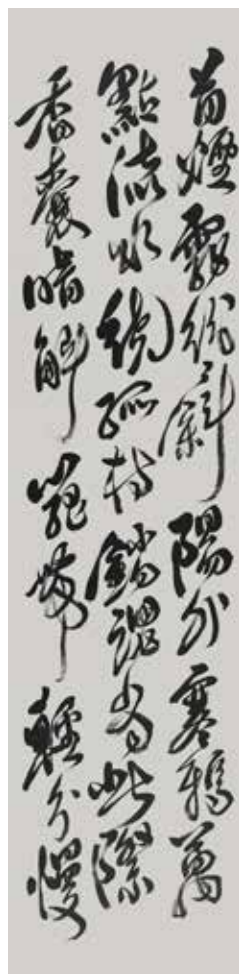 首煙靄紛〻斜陽外寒鴉萬
點流水繞孤村銷魂當此際
香囊暗解羅帶輕分慢